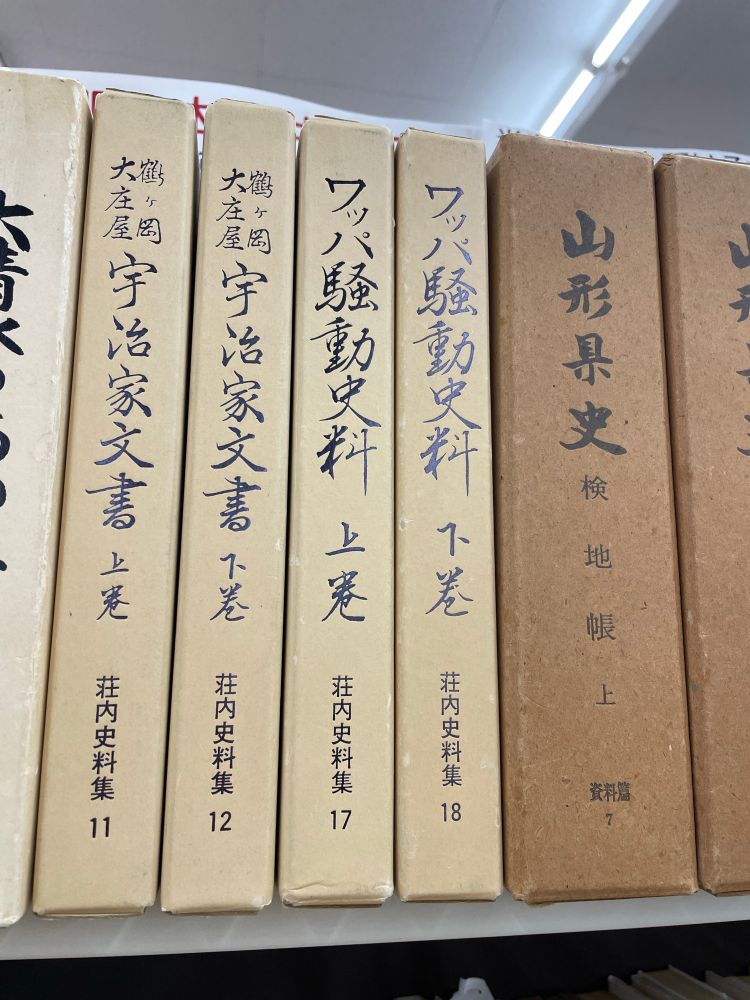 鶴ヶ岡
大庄屋
宇治家文書
上巻
荘内史料集
11
鶴ヶ岡
大庄屋
宇治家文書
下巻
荘内史料集
12
ワッパ騒動史料
上巻
荘内史料集
17
ワッパ騒動史料
下巻
荘内史料集
18
山形県史
検地帳
上
資料篇
7